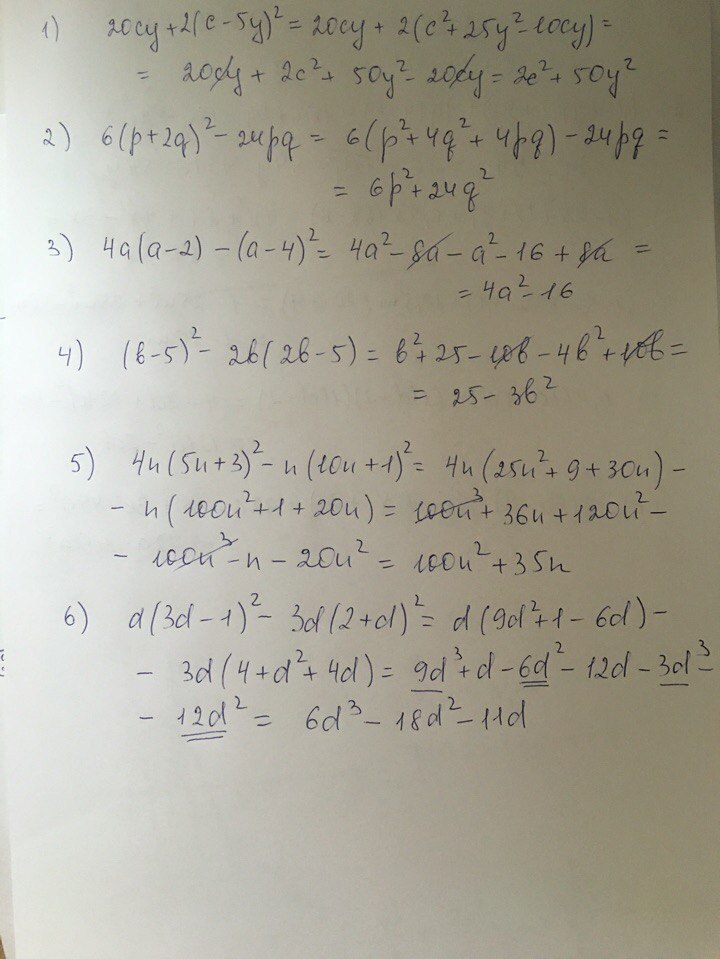 1) 20cy + 2(c - 5y)² = 20cy + 2(c² + 25y² - 10cy) =
= 20cy + 2c² + 50y² - 20cy = 2c² + 50y²
2) 6(p + 2q)² - 24pq = 6(p² + 4q² + 4pq) - 24pq =
= 6p² + 24q²
3) 4a(a - 2) - (a - 4)² = 4a² - 8a - a² - 16 + 8a =
= 4a² - 16
4) (b - 5)² - 2b(2b - 5) = b² + 25 - 10b - 4b² + 10b =
= 25 - 3b²
5) 4n(5n + 3)² - n(10n + 1)² = 4n(25n² + 9 + 30n) -
- n(100n² + 1 + 20n) = 100n³ + 36n + 120n² -
- 100n³ - n - 20n² = 100n² + 35n
6) d(3d - 1)² - 3d(2 + d)² = d(9d² + 1 - 6d) -
- 3d(4 + d² + 4d) = 9d³ + d - 6d² - 12d - 3d³ -
- 12d² = 6d³ - 18d² - 11d